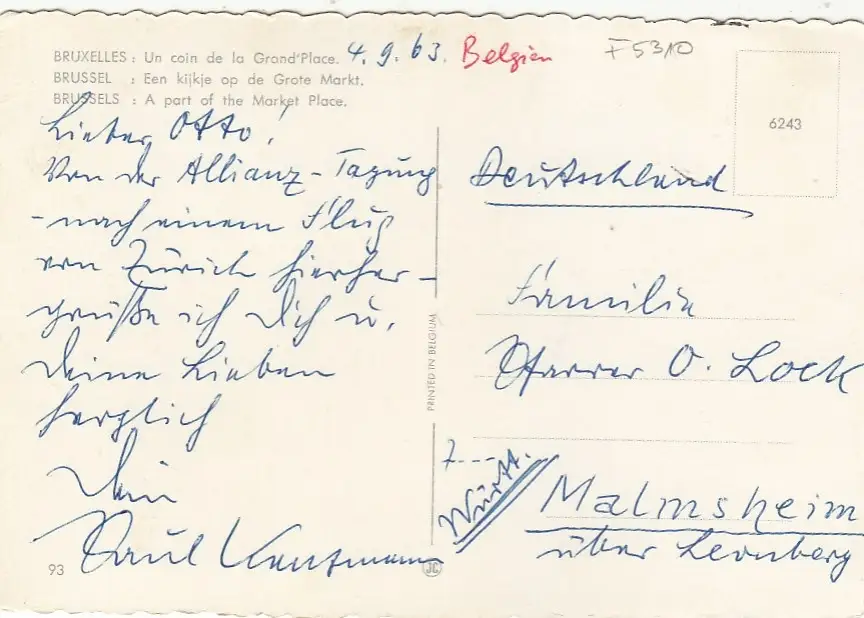 BRUXELLES : Un coin de la Grand'Place. 4.9.63. Belgien F5310
BRUSSEL : Een kijkje op de Grote Markt.
BRUSSELS : A part of the Market Place.
6243
Lieber Otto!
Von der Allianz-Tagung
- nach einem Flug
von Zürich hierher -
grüße ich Dich u.
Deine Lieben
herzlich
Dein
Paul
93
PRINTED IN BELGIUM
JC
Deutschland
Familie
Pfarrer O. Lock
7---
Württ.
Malmsheim
über Leonberg